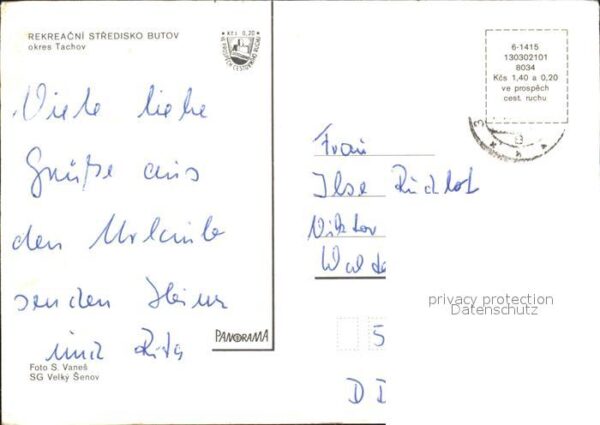 REKREAČNÍ STŘEDISKO BUTOV
okres Tachov
Kčs 0,20
VE PROSPĚCH CESTOVNÍHO RUCHU
6-1415
130302101
8034
Kčs 1,40 a 0,20
ve prospěch
cest. ruchu
Viele liebe
Grüße aus
den Urlaub
senden Heinz
und Rita
Frau
Ilse
Viktor
5
PANORAMA
Foto S. Vaneš
SG Velký Šenov
privacy protection
Datenschutz